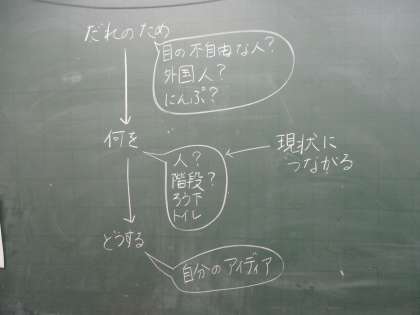 だれのため
目の不自由な人?
外国人?
にんぷ?
何を
人?
階段?
ろう下
トイレ
現状に
つながる
どうする
自分のアイディア